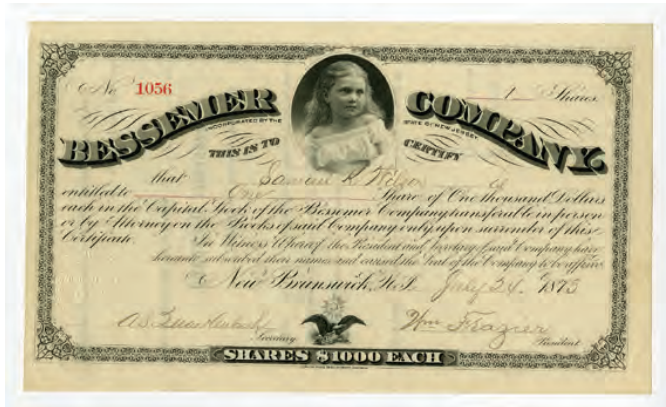 No. 1056
1 Shares
BESSEMER COMPANY.
INCORPORATED BY THE STATE OF NEW JERSEY
THIS IS TO CERTIFY
that Samuel R. Wilson is
entitled to One Share of One thousand Dollars
each in the Capital Stock of the Bessemer Company, transferable in person
or by Attorney on the Books of said Company only upon surrender of this
Certificate.
In Witness Whereof the President and Secretary of said Company have
hereunto subscribed their names and caused the Seal of the Company to be affixed
New Brunswick, N.J. July 24 1873
Wm Frazier
Secretary
President
SHARES $1000 EACH